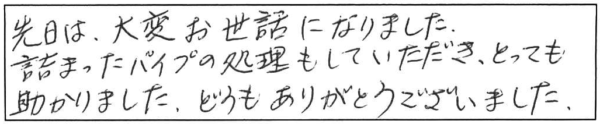 先日は、大変お世話になりました.
詰まったパイプの処理もしていただき、とっても
助かりました. どうもありがとうございました.